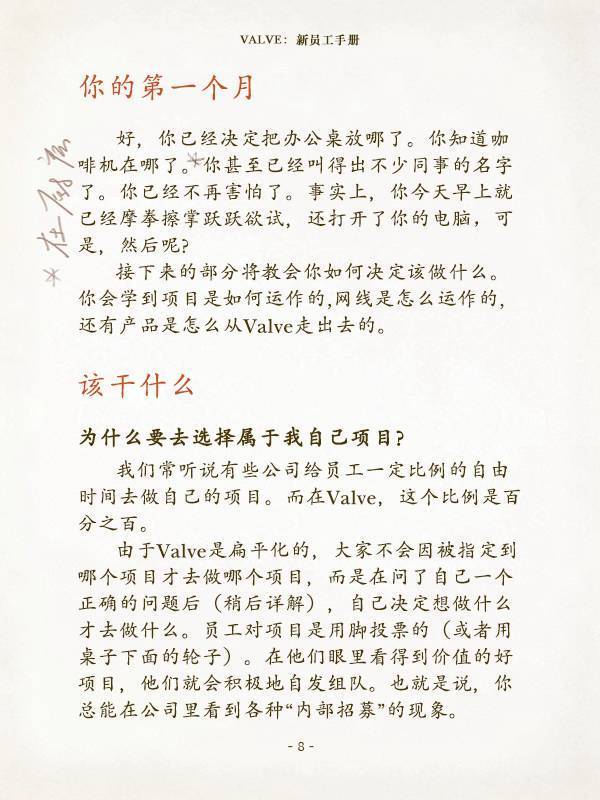 VALVE: 新员工手册
你的第一个月
好，你已经决定把办公桌放哪了。你知道咖
啡机在哪了。*你甚至已经叫得出不少同事的名字
了。你已经不再害怕了。事实上，你今天早上就
已经摩拳擦掌跃跃欲试，还打开了你的电脑，可
是，然后呢?
接下来的部分将教会你如何决定该做什么。
你会学到项目是如何运作的,网线是怎么运作的，
还有产品是怎么从Valve走出去的。
*在厨房
该干什么
为什么要去选择属于我自己项目?
我们常听说有些公司给员工一定比例的自由
时间去做自己的项目。而在Valve，这个比例是百
分之百。
由于Valve是扁平化的，大家不会因被指定到
哪个项目才去做哪个项目，而是在问了自己一个
正确的问题后（稍后详解），自己决定想做什么
才去做什么。员工对项目是用脚投票的（或者用
桌子下面的轮子）。在他们眼里看得到价值的好
项目，他们就会积极地自发组队。也就是说，你
总能在公司里看到各种“内部招募”的现象。
- 8 -